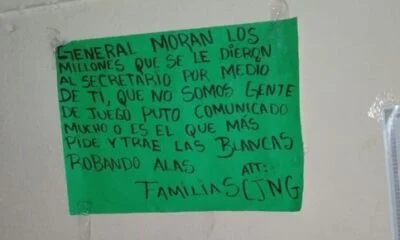 GENERAL MORAN LOS
MILLONES QUE SE LE DIERON
AL SECRETARIO POR MEDIO
DE TI, QUE NO SOMOS GENTE
DE JUEGO PUTO COMUNICADO
MUCHO O ES EL QUE MÁS
PIDE Y TRAE LAS BLANCAS
ROBANDO ALAS ATT:
FAMILIA SCJNG